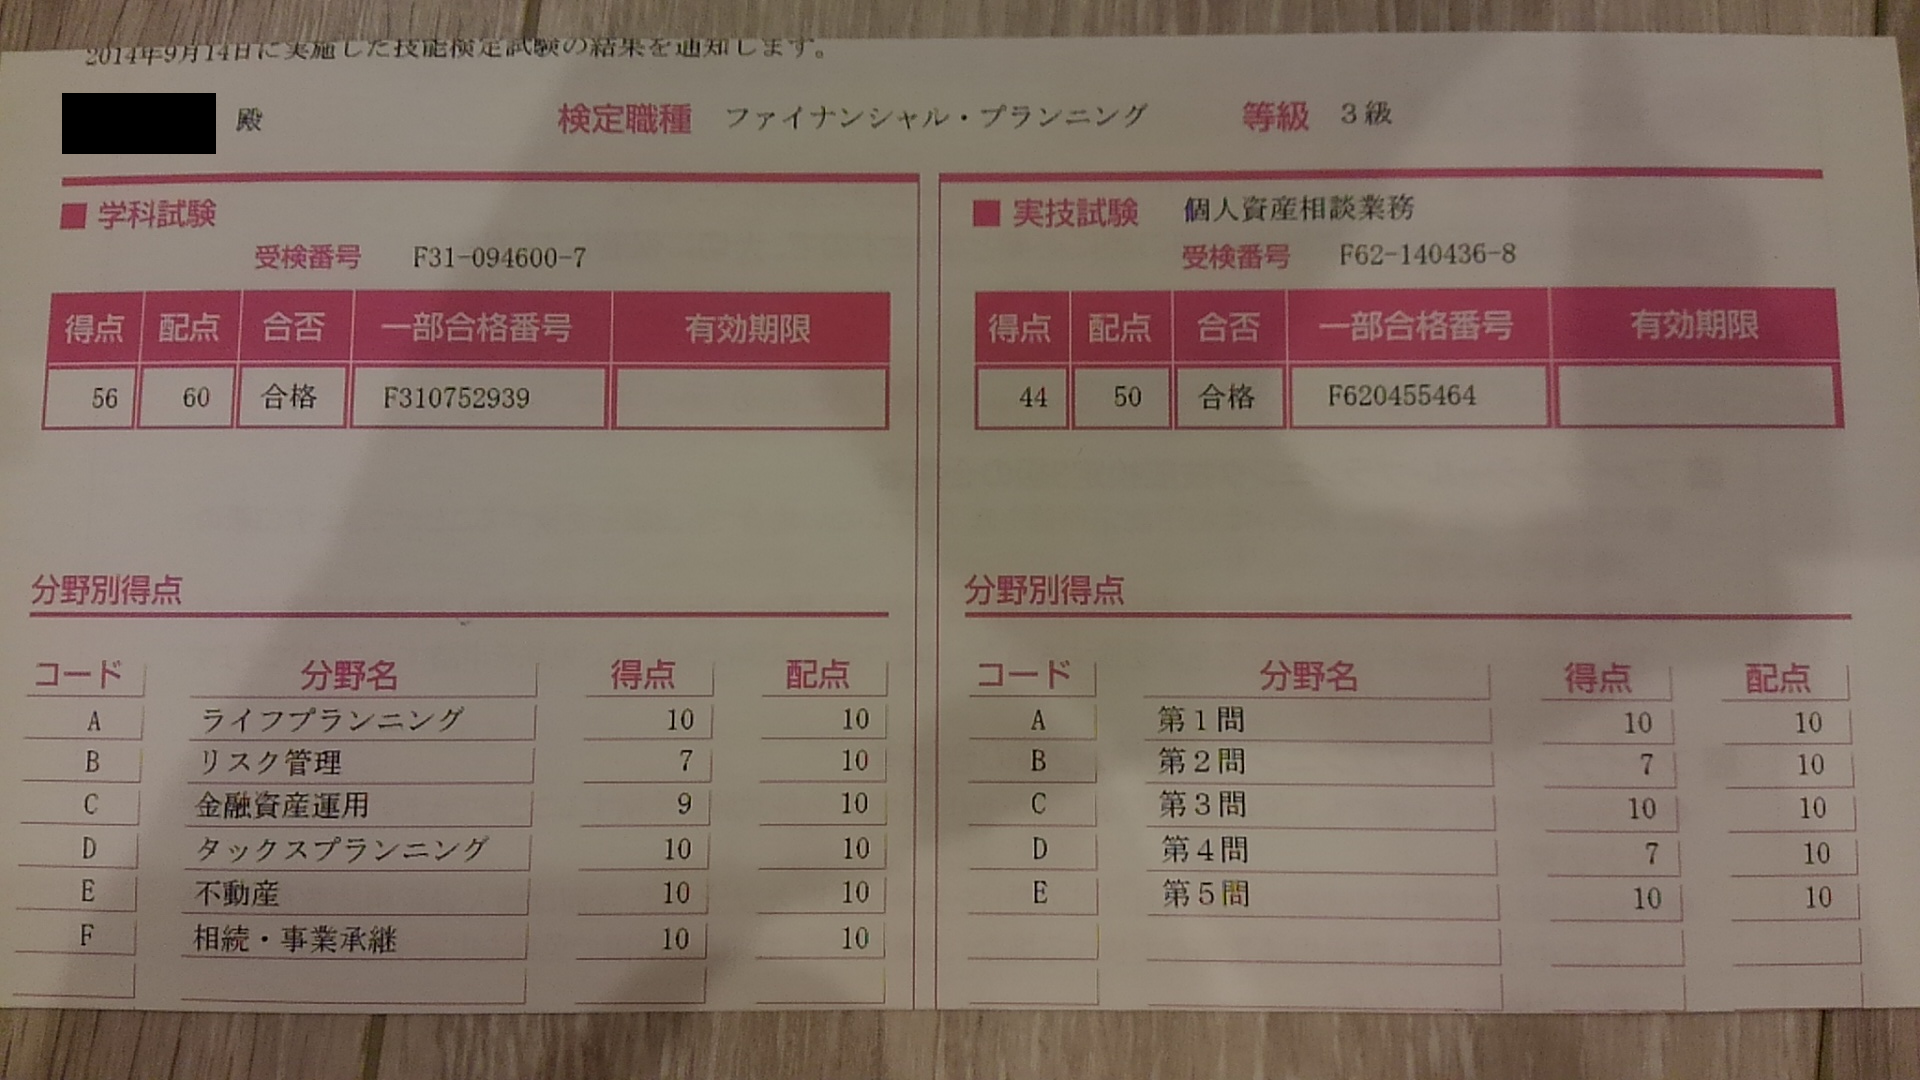 2014年9月14日に実施した技能検定試験の結果を通知します。
殿 検定職種 ファイナンシャル・プランニング 等級 3級
■ 学科試験
受検番号 F31-094600-7
得点 配点 合否 一部合格番号 有効期限
56 60 合格 F310752939
分野別得点
コード 分野名 得点 配点
A ライフプランニング 10 10
B リスク管理 7 10
C 金融資産運用 9 10
D タックスプランニング 10 10
E 不動産 10 10
F 相続・事業承継 10 10
■ 実技試験 個人資産相談業務
受検番号 F62-140436-8
得点 配点 合否 一部合格番号 有効期限
44 50 合格 F620455464
分野別得点
コード 分野名 得点 配点
A 第1問 10 10
B 第2問 7 10
C 第3問 10 10
D 第4問 7 10
E 第5問 10 10